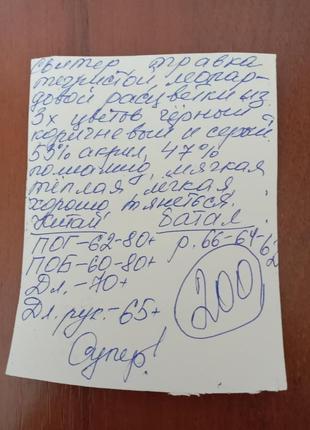 свитер травка
тигристой леопар-
довой расцветки из
3х цветов чёрный,
коричневый и серый.
53% акрил, 47%
полиамид, мягкая
тёплая, лёгкая,
хорошо тянеться.
Китай Батал
ПОГ-62-80+ р.66-64-62
ПОБ-60-80+
Дл.-70+ 200
Дл. рук.-65+
Супер!